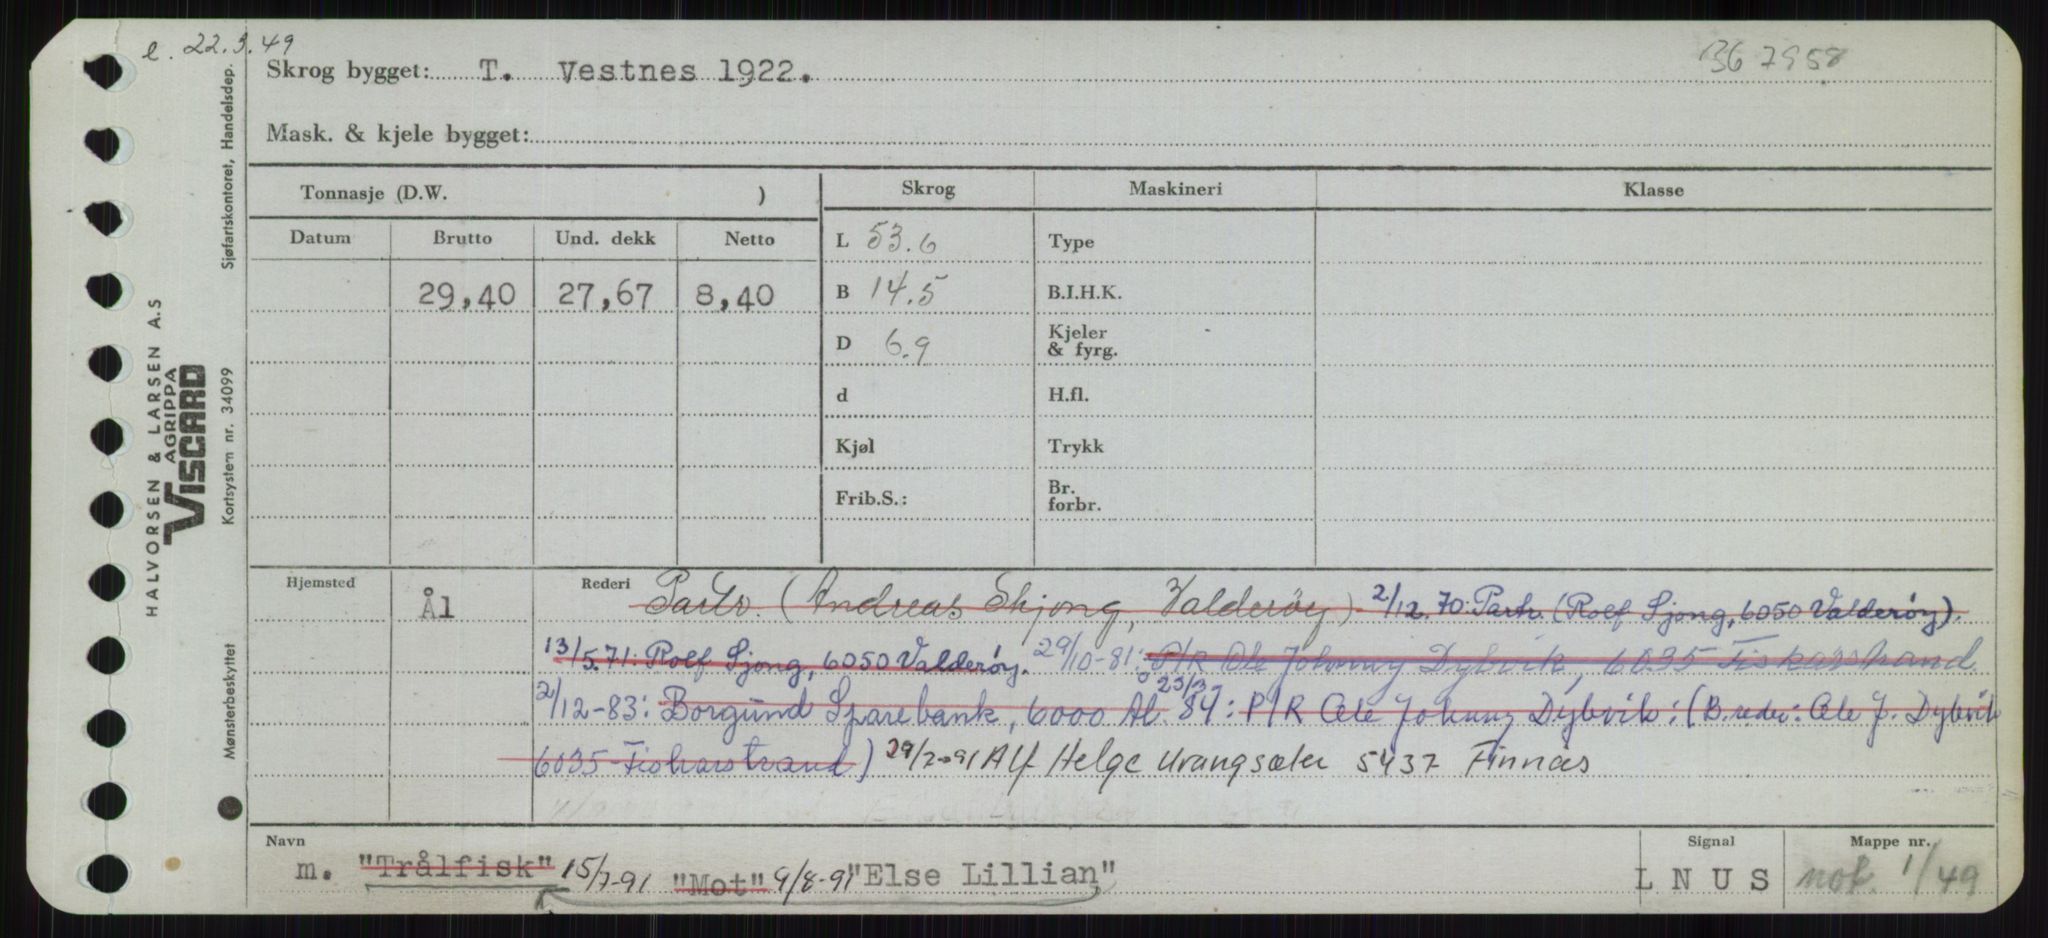 e. 22.3.49
Skrog bygget: T. Vestnes 1922. 367958
Mask. & kjele bygget:
Tonnasje (D.W. ) Skrog Maskineri Klasse
Datum Brutto Und. dekk Netto L 53.6 Type
29,40 27,67 8,40 B 14.5 B.I.H.K.
D 6.9 Kjeler & fyrg.
d H.fl.
Kjøl Trykk
Frib.S.: Br. forbr.
Hjemsted Ål Rederi Partr. (Andreas Skjong, Valderøy) 2/12.70: Partr. (Rolf Sjong, 6050 Valderøy).
13/5.71: Rolf Sjong, 6050 Valderøy. 29/10-81: P/R Ole Johnny Dybvik, 6035 Fiskarstrand
2/12-83: Borgund Sparebank, 6000 Ål. 23/3-84: P/R Ole Johnny Dybvik: (B.reder: Ole J. Dybvik
6035 Fiskarstrand) 29/7-91 Alf Helge Urangsæter 5437 Finnås
Navn Signal Mappe nr.
m. "Trålfisk" 15/7-91 "Mot" 9/8-91 "Else Lillian" L N U S nok. 1/49
HALVORSEN & LARSEN A.S
AGRIPPA
VISCARD
Sjøfartskontoret, Handelsdep.
Kortsystem nr. 34099
Mønsterbeskyttet